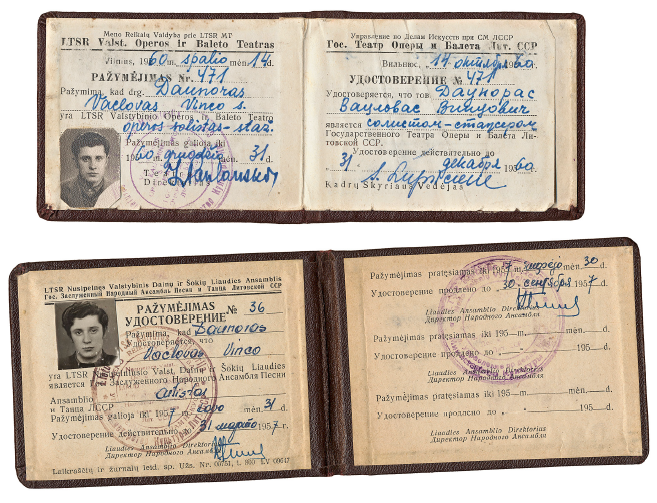 Meno Reikalų Valdyba prie LTSR MT
LTSR Valst. Operos ir Baleto Teatras
Vilnius, 1960 m. spalio mėn. 14 d.
PAŽYMĖJIMAS Nr. 471
Pažymima, kad drg. Daunoras
Vaclovas Vinco s.
yra LTSR Valstybinio Operos ir Baleto Teatro
operos solistas-staž.
Pažymėjimas galioja iki
60 gruodžio 31 d.
Управление по Делам Искусств при СМ ЛССР
Гос. Театр Оперы и Балета Лит. ССР
Вильнюс, 14 октября 60
УДОСТОВЕРЕНИЕ № 471
Удостоверяется, что тов Даунорас
Вацловас Винцович
является солистом-стажером
Государственного Театра Оперы и Балета Ли-
товской ССР.
Удостоверение действительно до
31 декабря 1960
Kadrų Skyriaus Vedėjas
LTSR Nusipelnęs Valstybinis Dainų ir Šokių Liaudies Ansamblis
Гос. Заслуженный Народный Ансамбль Песни и Танца Литовской ССР
PAŽYMĖJIMAS
УДОСТОВЕРЕНИЕ № 36
Pažymima, kad Daunoras
Удостоверяется, что
Vaclovas Vinco
yra LTSR Nusipelniusio Valst. Dainų ir Šokių Liaudies
является Заслуженного Народного Ансамбля Песни
Ansamblio artistas
и Танца ЛССР
Pažymėjimas galioja iki 1957 m. kovo mėn. 31 d.
Удостоверение действительно до 31 марта 1957 г.
Liaudies Ansamblio Direktorius
Директор Народного Ансамбля
Laikraščių ir žurnalų leid. sp. Užs. Nr.
Pažymėjimas pratęsiamas iki 1957 m. rugsėjo mėn. 30 d.
Удостоверение продлено до 30 сентября 1957 г.
Liaudies Ansamblio Direktorius
Директор Народного Ансамбля
Pažymėjimas pratęsiamas iki 195 m. mėn. d.
Удостоверение продлено до 195 г.
Liaudies Ansamblio Direktorius
Директор Народного Ансамбля
Pažymėjimas pratęsiamas iki 195 m. mėn. d.
Удостоверение продлено до 195 г.
Liaudies Ansamblio Direktorius
Директор Народного Ансамбля